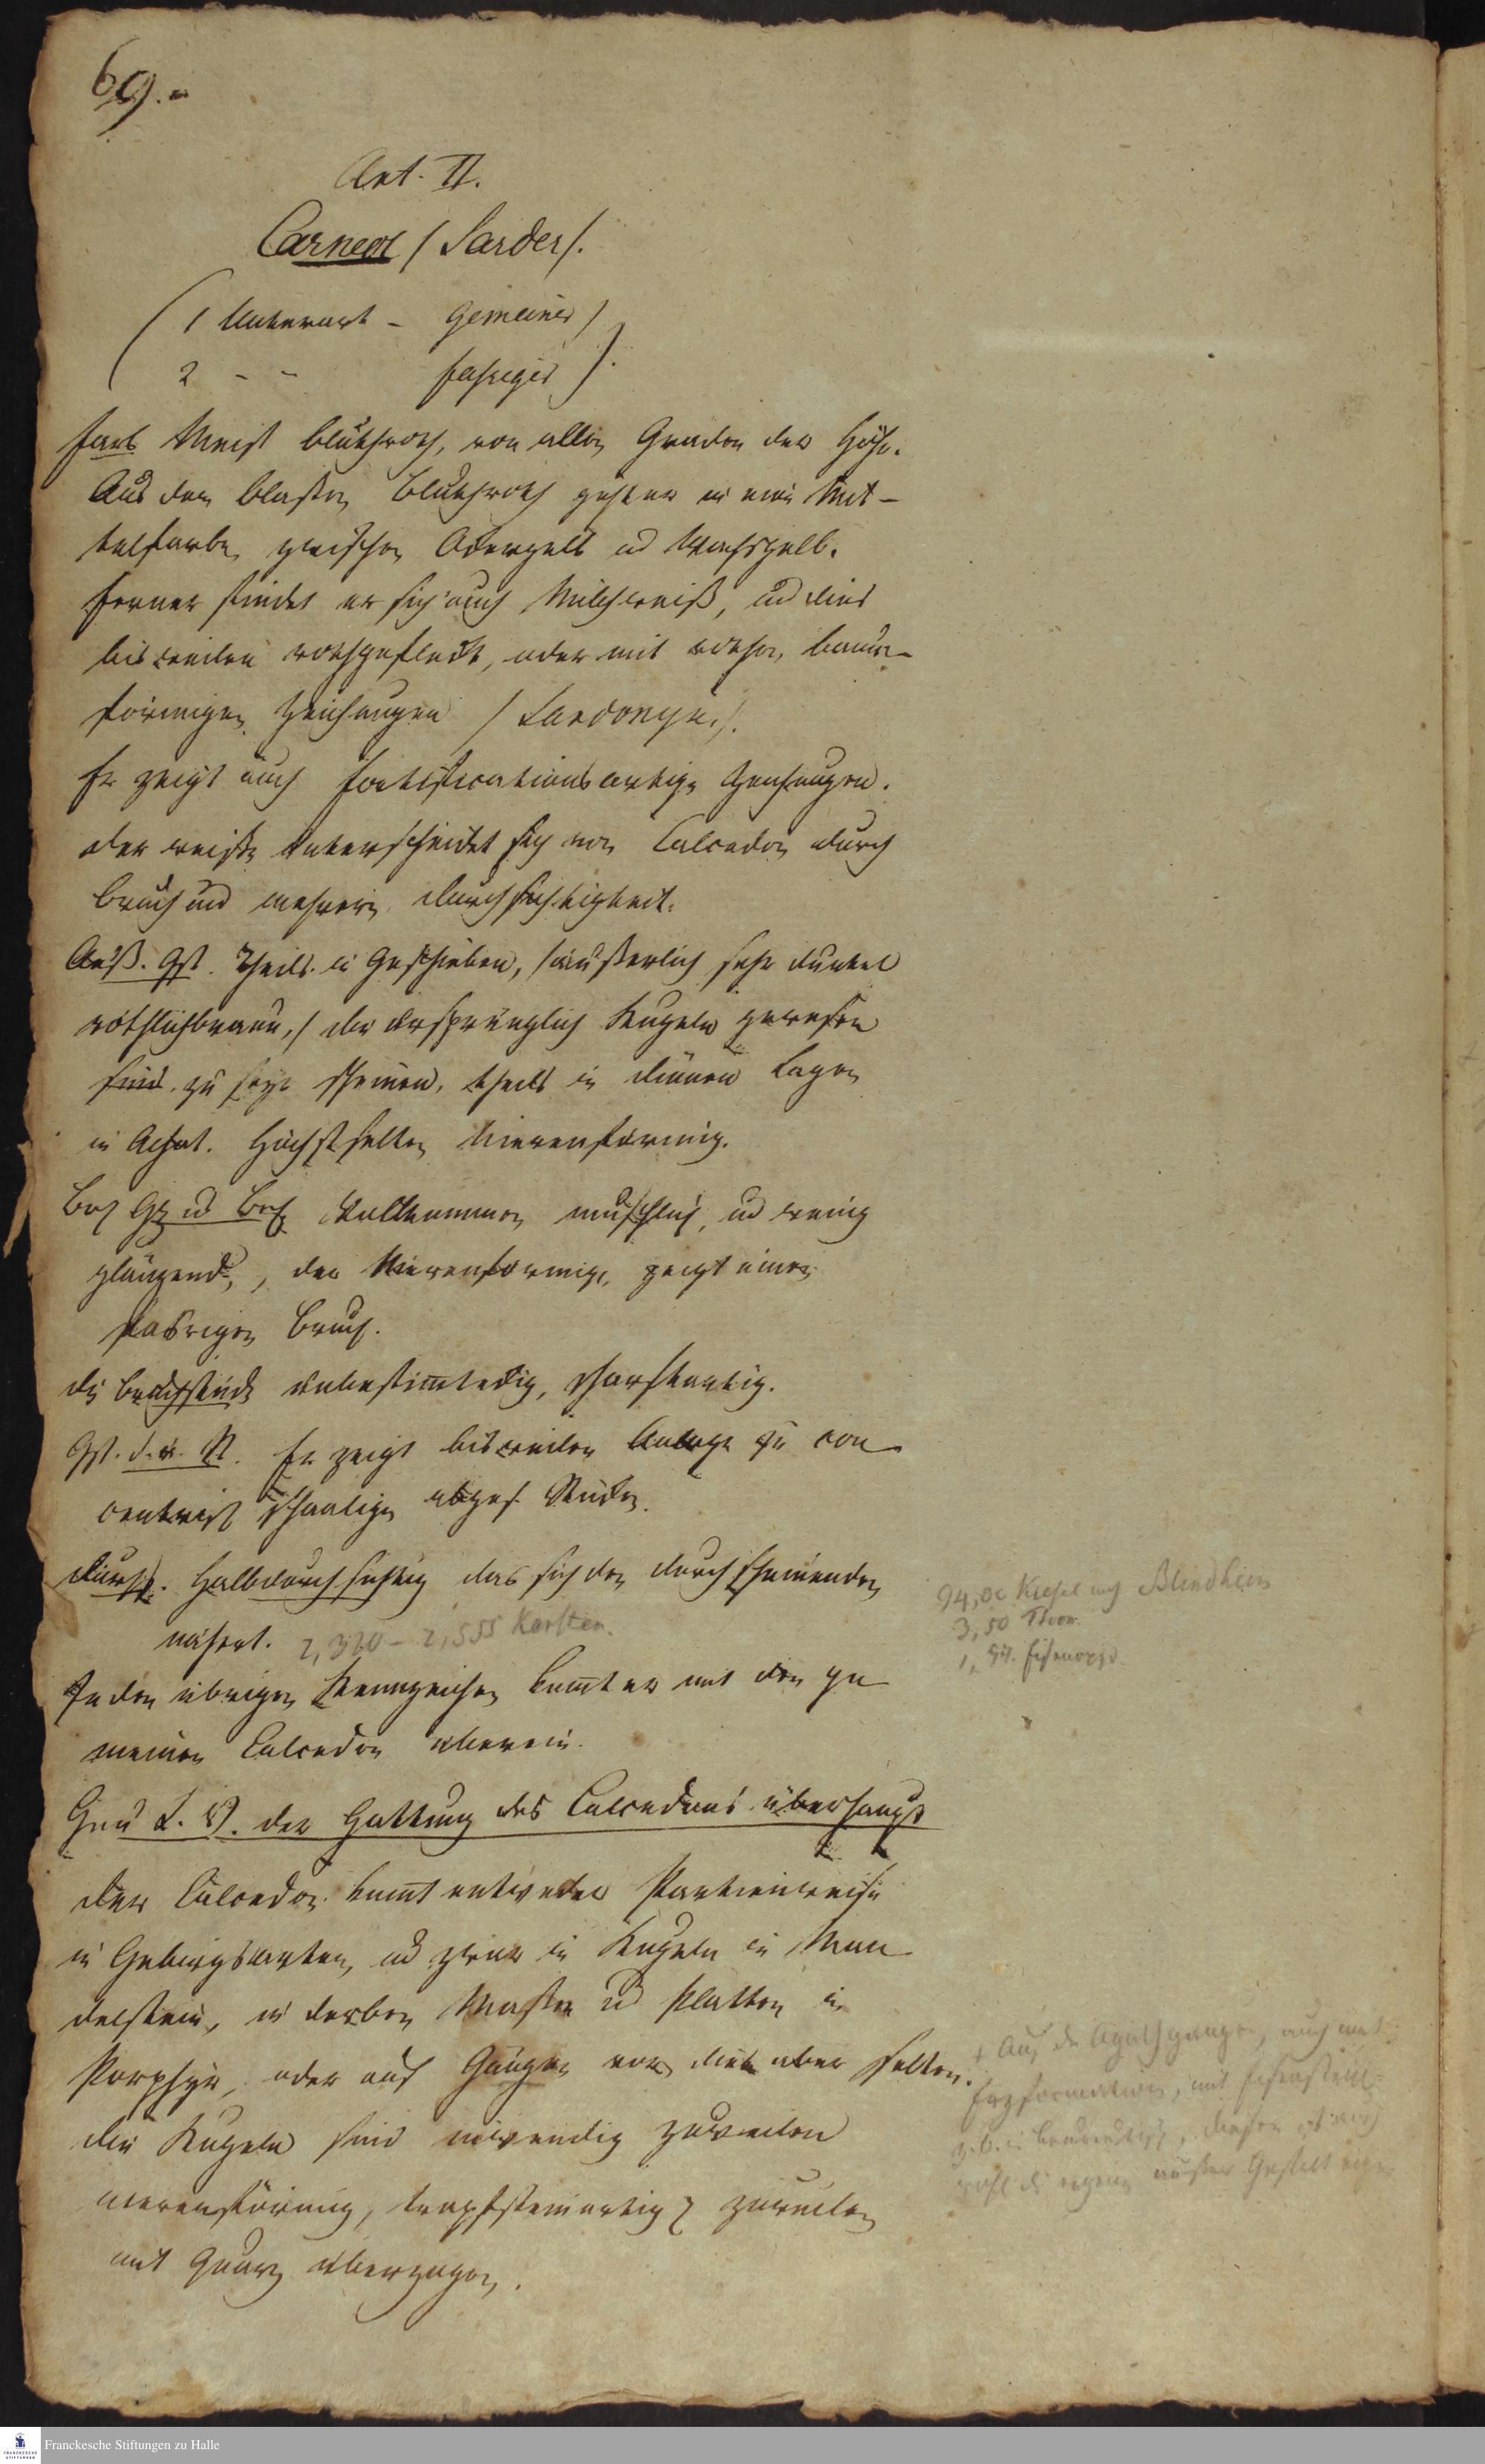 69.-
Art. II.
Carneol / Sarder /.
( 1 Unterart - Gemeiner )
2 - - fasriger ).
Farb Meist blutroth, von allen Graden der Höhe.
Aus dem blassen Blutroth geht er in eine Mit-
telfarbe zwischen Ockergelb und Wachsgelb.
Ferner findet er sich auch Milchweiß, und dies
bisweilen rothgefleckt, oder mit rothen baum-
förmigen Zeichnungen / Sardonyx /.
Er zeigt auch fortificationsartige Zeichnungen.
der weiße unterscheidet sich vom Calcedon durch
Bruch und mehrere Durchsichtigkeit.
Aeuß. Gst. Theils in Geschieben, / äußerlich sehr dunkel
röthlichbraun, / die ursprünglich Kugeln gewesen
sind zu seyn scheinen, theils in dünnen Lagen
in Achat. Höchst selten Nierenförmig.
Gz und Bch Vollkommen muschlich, und wenig
glänzend, der Nierenförmige zeigt einen
fasrigen Bruch.
die Bruchstücke unbestimmteckig, scharfkantig.
Gst. d. a. St. Er zeigt bisweilen Anlage zu con-
centrisch schaaligen abges. Stücken.
Durchs. Halbdurchsichtig das sich dem durchscheinenden
nähert. 2,320 - 2,555 Karsten.
In den übrigen Kennzeichen kommt er mit dem ge-
meinen Calcedon überein.
94,00 Kiesel nach Bindheim
3,50 Thon.
Eisenoxyd
Geu L. V. der Gattung des Calcedons überhaupt
Der Calcedon kommt entweder Partienweise
in Gebirgsarten, und zwar in Kugeln in Man-
delstein, in derben Massen und Platten in
Porphyr, oder auf Gängen vor, dies aber selten.
die Kugeln sind inwendig zuweilen
nierenförmig, tropfsteinartig zuweilen
mit Quarz überzogen.
Auf den Agathgängen, auch mit
Erzformation, mit Eisenstein
äußere Gestalt